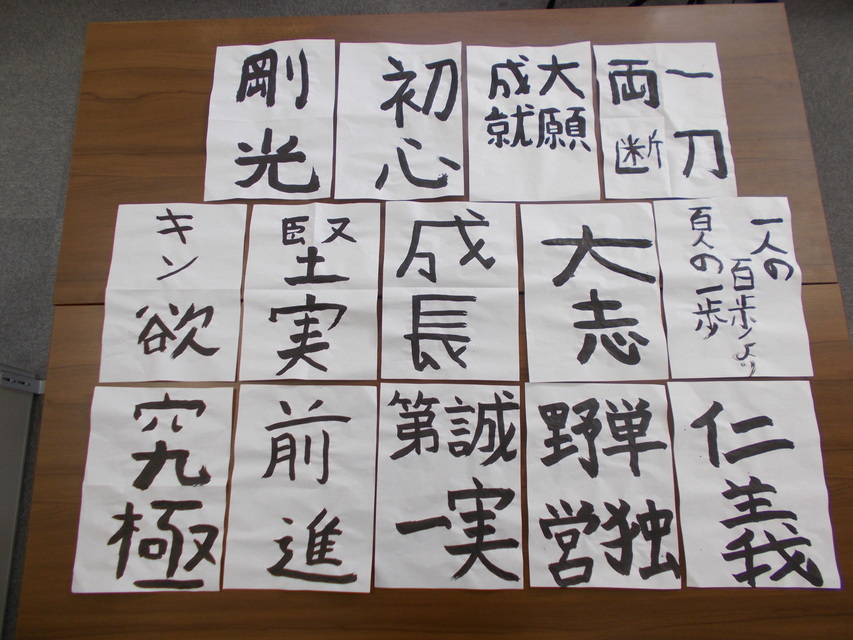 一刀
両断
大願
成就
初
心
剛
光
一人の
百歩より
百人の一歩
大
志
成
長
堅
実
キン
欲
仁
義
単独
野営
誠実
第一
前
進
究
極